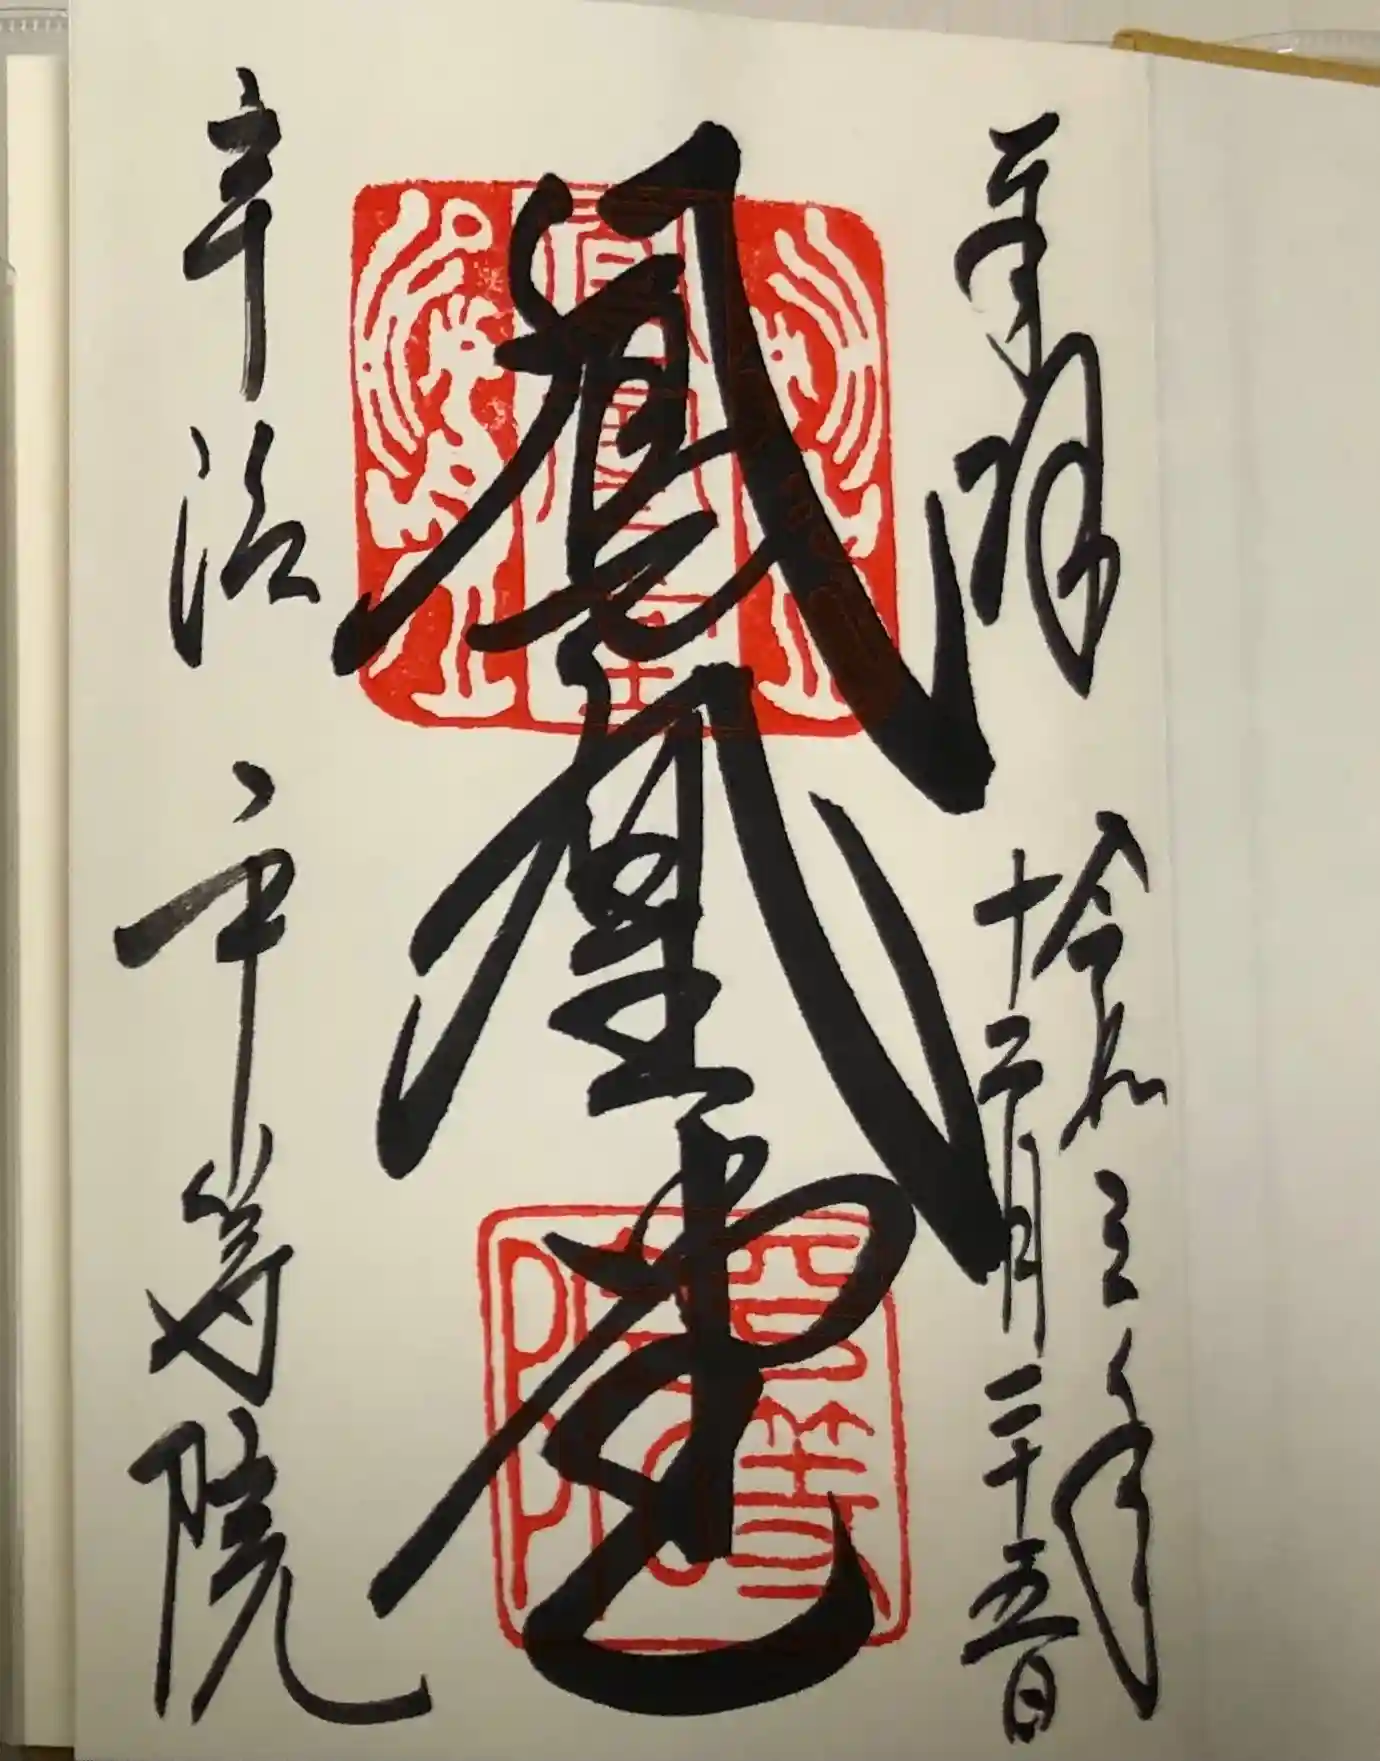 奉拝
令和三年
十二月二十五日
鳳凰堂
平等
院
宇治 平等院